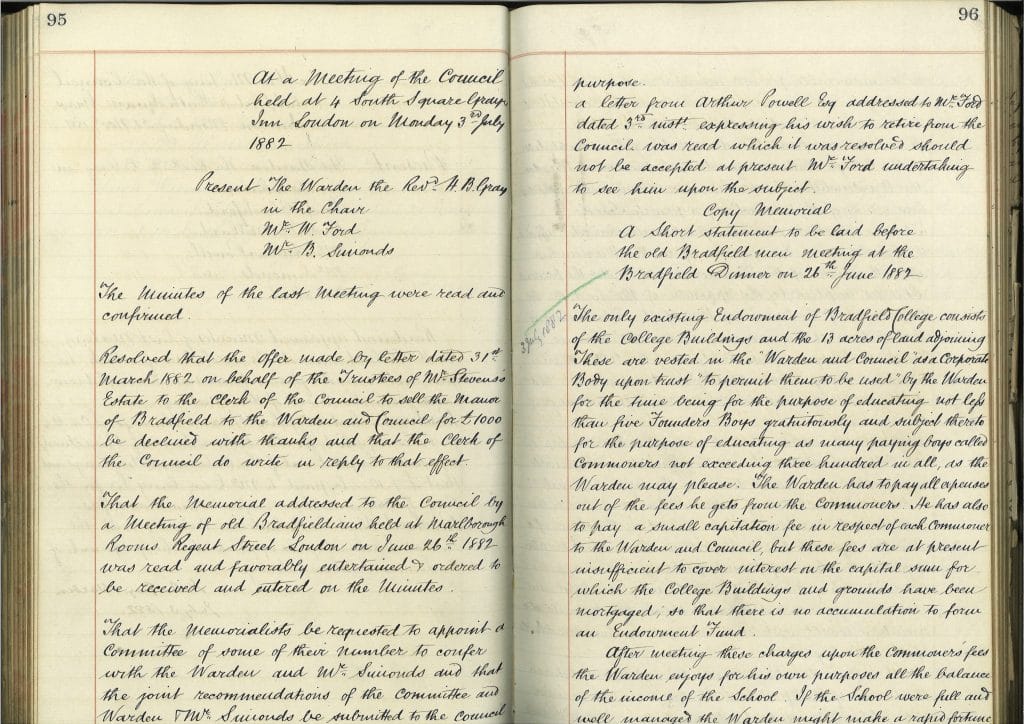 95
At a Meeting of the Council
held at 4 South Square Grays
Inn London on Monday 3rd July
1882
Present The Warden the Revd. H. B. Gray
in the Chair
Mr. W. Ford
Mr. B. Simonds
The Minutes of the last Meeting were read and
confirmed.
Resolved that the offer made by letter dated 31st
March 1882 on behalf of the Trustees of Mr. Stevens's
Estate to the Clerk of the Council to sell the Manor
of Bradfield to the Warden and Council for £1000
be declined with thanks and that the Clerk of
the Council do write in reply to that effect.
That the Memorial addressed to the Council by
a Meeting of old Bradfieldians held at Marlborough
Rooms Regent Street London on June 26th 1882
was read and favorably entertained & ordered to
be received and entered on the Minutes.
That the Memorialists be requested to appoint a
Committee of some of their number to confer
with the Warden and Mr. Simonds and that
the joint recommendations of the Committee and
Warden & Mr. Simonds be submitted to the Council
96
purpose.
a letter from Arthur Powell Esq addressed to Mr. Ford
dated 3rd inst. expressing his wish to retire from the
Council was read which it was resolved should
not be accepted at present Mr. Ford undertaking
to see him upon the subject.
Copy Memorial
A Short statement to be laid before
the old Bradfield men meeting at the
Bradfield Dinner on 26th June 1882
3 July 1882
The only existing Endowment of Bradfield College consists
of the College Buildings and the 13 acres of land adjoining
These are vested in the "Warden and Council" as a Corporate
Body upon trust "to permit them to be used" by the Warden
for the time being for the purpose of educating not less
than five Founders Boys gratuitously and subject thereto
for the purpose of educating as many paying boys called
Commoners not exceeding three hundred in all, as the
Warden may please. The Warden has to pay all expenses
out of the fees he gets from the Commoners. He has also
to pay a small capitation fee in respect of each Commoner
to the Warden and Council, but these fees are at present
insufficient to cover interest on the capital sum for
which the College Buildings and grounds have been
mortgaged; so that there is no accumulation to form
an Endowment Fund.
After meeting these charges upon the Commoners' fees
the Warden enjoys for his own purposes all the balance
of the income of the School. If the School were full and
well managed the Warden might make a rapid fortune